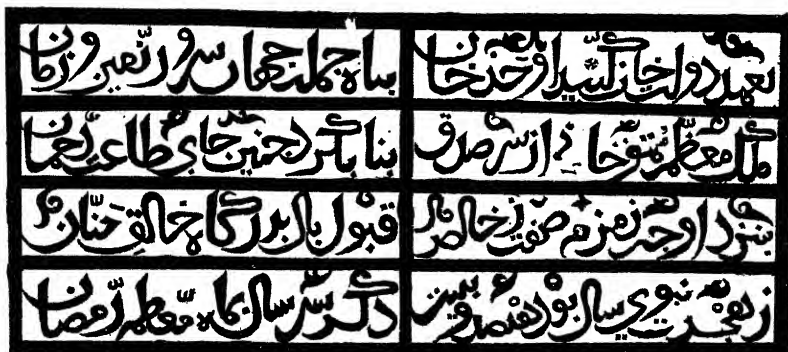 بعهد دولت خان اوحد خان پناه جمله جهان سرور زمین و زمان
ملک معظم از سر صدق بنا بکرد چنین جای طاعت رحمان
چه زمزم صفت ز خالص مال قبول باد بدرگاه خالق حنان
ز هجرت نبوی سال بود هفتصد و بیست دگر سال بماه معظم رمضان